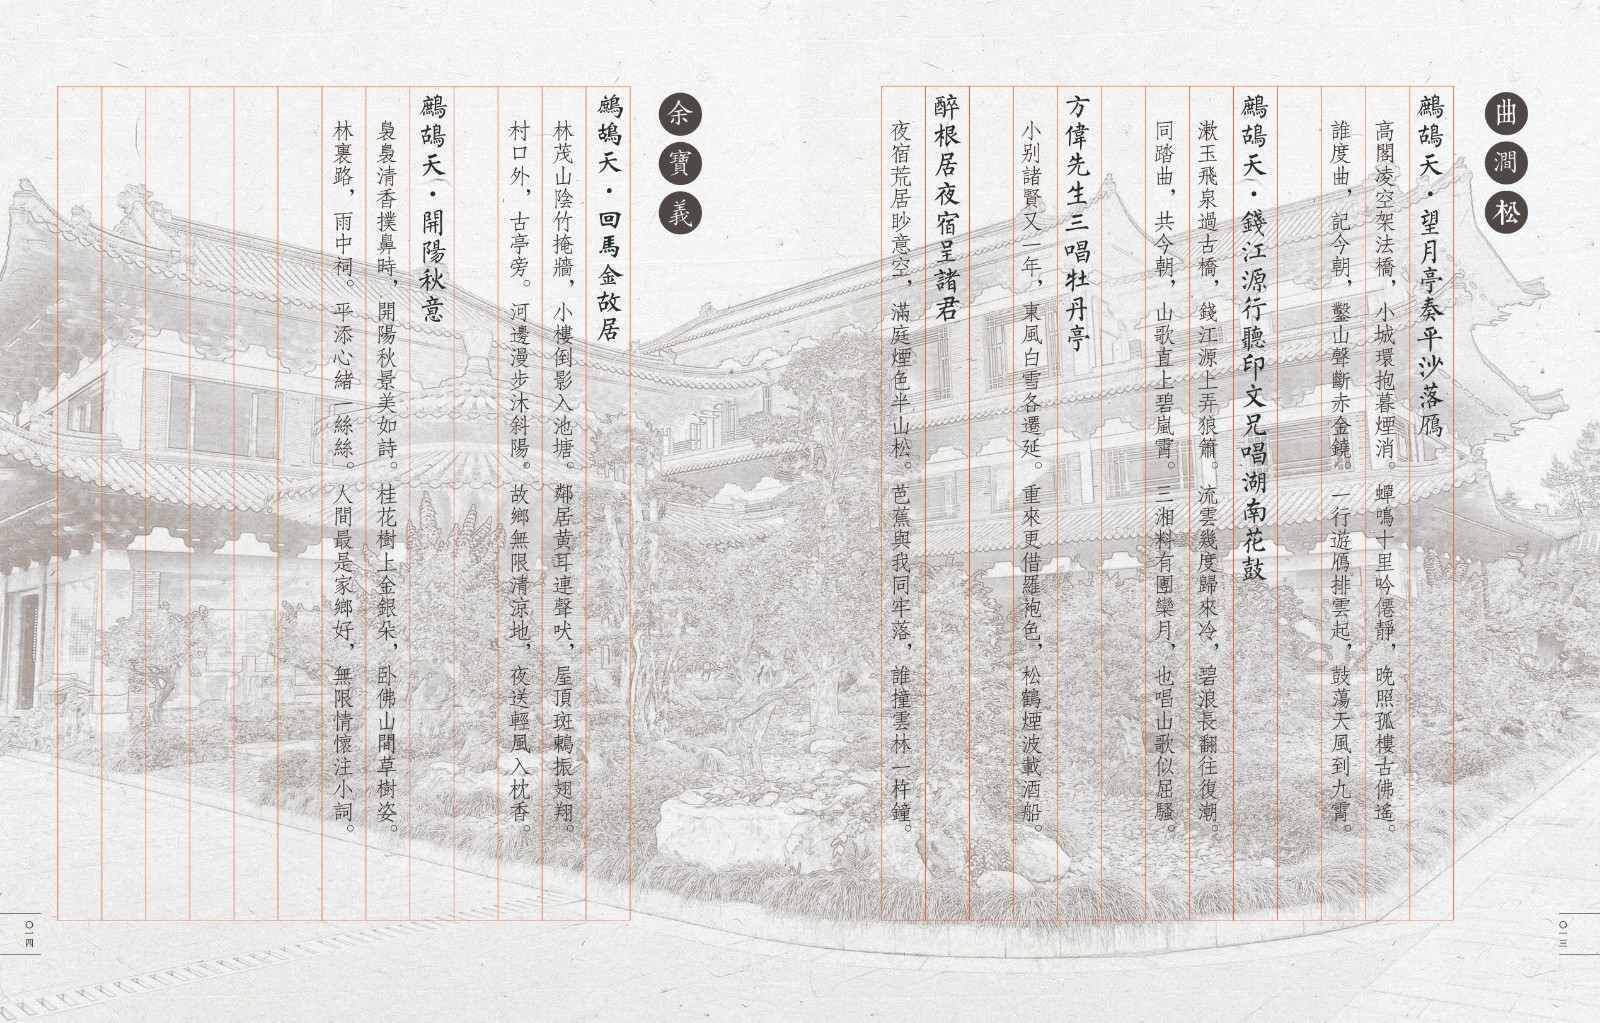 曲澗松
鷓鴣天·望月亭奏平沙落鴈
高閣凌空架法橋，小城環抱暮煙消。蟬鳴十里吟僊靜，晚照孤樓古佛遙。
誰度曲，記今朝，鑿山聲斷赤金鐃。一行遊鴈排雲起，鼓蕩天風到九霄。
鷓鴣天·錢江源行聽印文兄唱湖南花鼓
漱玉飛泉過古橋，錢江源上弄狼簫。流雲幾度歸來冷，碧浪長翻往復潮。
同踏曲，共今朝，山歌直上碧嵐霄。三湘料有團欒月，也唱山歌似屈騷。
方偉先生三唱牡丹亭
小别諸賢又一年，東風白雪各遷延。重來更借羅袍色，松鶴煙波載酒船。
醉根居夜宿呈諸君
夜宿荒居眇意空，滿庭煙色半山松。芭蕉與我同牢落，誰撞雲林一杵鐘。
〇一三
余寶義
鷓鴣天·回馬金故居
林茂山陰竹掩牆，小樓倒影入池塘。鄰居黄耳連聲吠，屋頂斑鶫振翅翔。
村口外，古亭旁。河邊漫步沐斜陽。故鄉無限清涼地，夜送輕風入枕香。
鷓鴣天·開陽秋意
裊裊清香撲鼻時，開陽秋景美如詩。桂花樹上金銀朵，卧佛山間草樹姿。
林裏路，雨中祠。平添心緒一絲絲。人間最是家鄉好，無限情懷注小詞。
〇一四